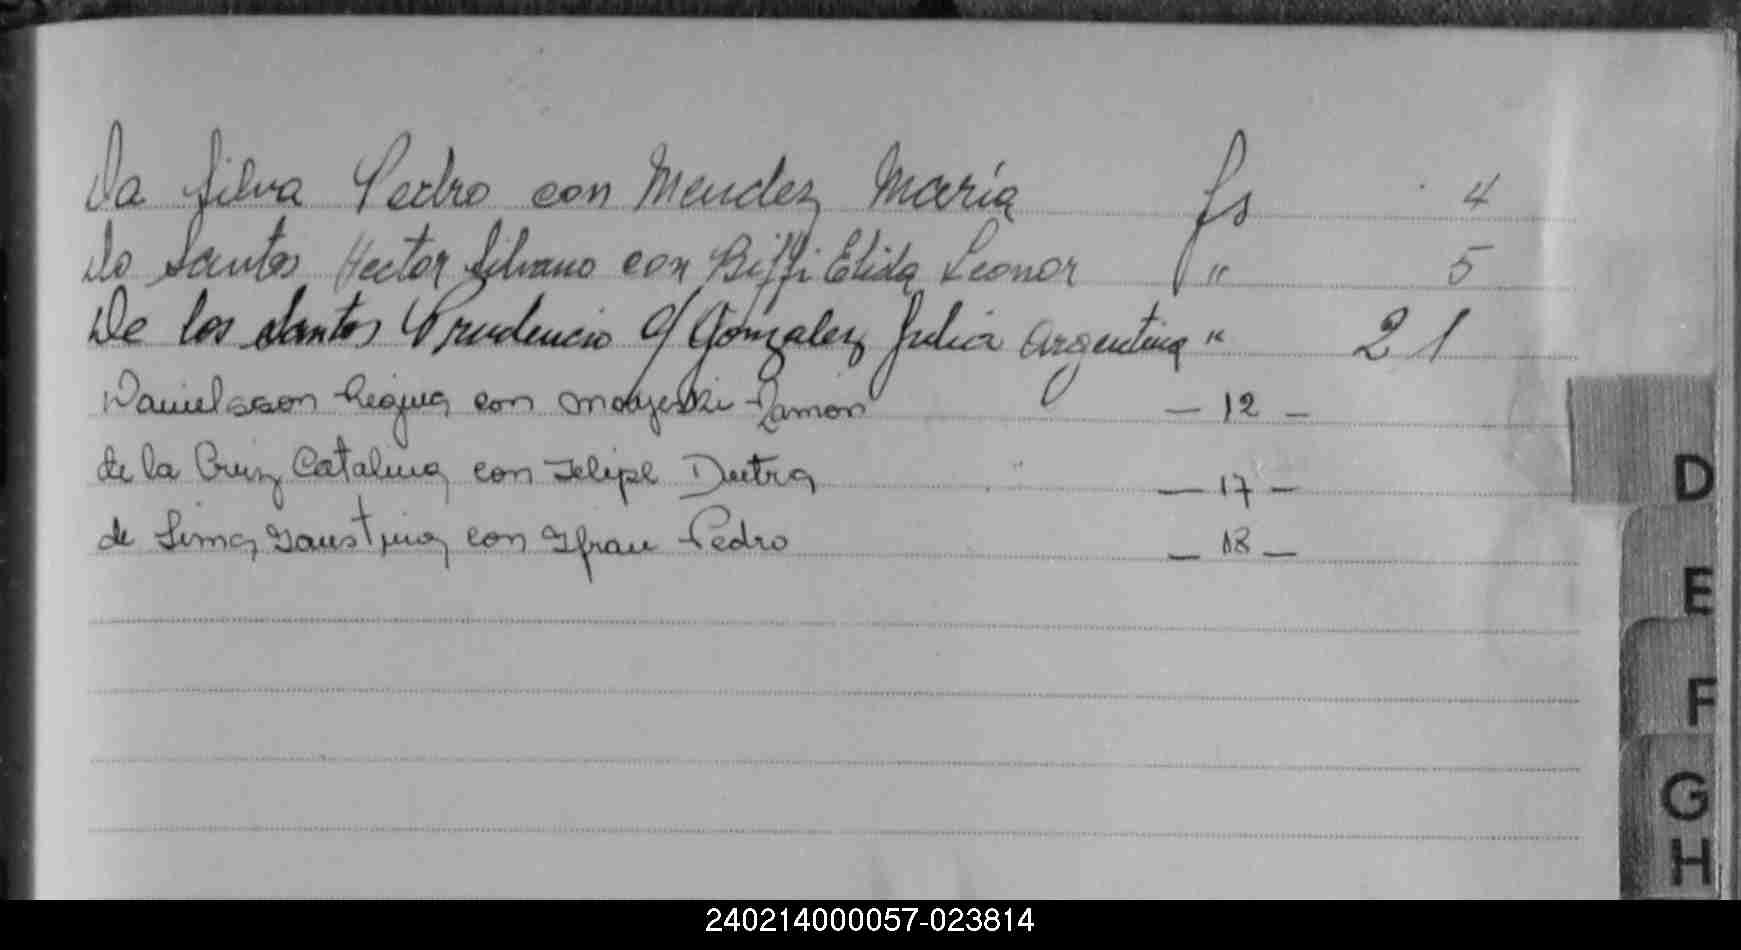 Da Silva Pedro con Mendez María fs 4
Do Santos Hector Silvano con Biffi Elida Leonor " 5
De los Santos Prudencio c/ Gonzalez Julia Argentina " 21
Danielsson Regina con Ramon — 12 —
de la Cruz Catalina con Felipe Dutra — 17 —
de Lima Faustina con Pedro — 18 —
D
E
F
G
H
240214000057-023814